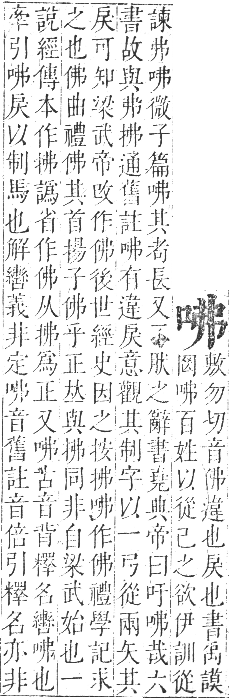 咈
敷勿切音佛違也戾也書禹謨
罔咈百姓以從己之欲伊訓從
諫弗咈微子篇咈其耉長又不肰之辭書堯典帝曰吁咈哉六
書故與弗拂通舊註咈有違戾意觀其制字以一弓從兩矢其
戾可知梁武帝改作佛後世經史因之按拂咈作佛禮學記求
之也佛曲禮佛其首揚子佛乎正𠀤與拂同非自梁武始也一
說經傳本作拂譌省作佛从拂爲正又咈音背釋名轡咈也
牽引咈戾以制馬也解轡義非定咈音舊註音倍引釋名亦非